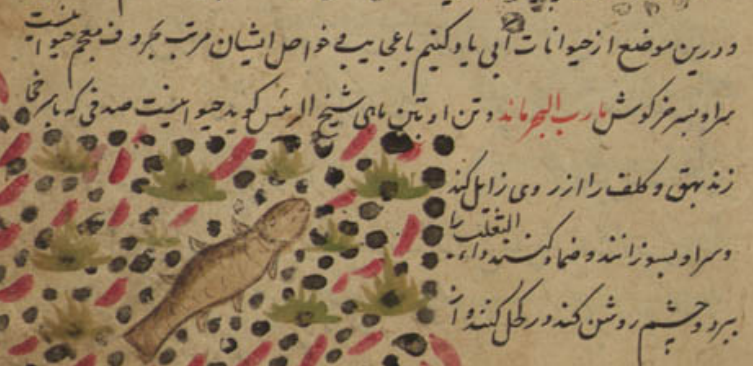 و درین موضع از حیوانات آبی یاد کنیم با عجایب و خواص ایشان مرتب بحروف معجم حیوانیست
سر او بسر خرگوش ارنب البحر ماند و تن او بتن ماهی شیخ الرئیس گوید حیوانیست صدفی که با سرخی
زند بهق و کلف را از روی زایل کند
و سر او بسوزانند و ضماد کنند داء الثعلب را
ببرد و چشم روشن کند در کحل کننده